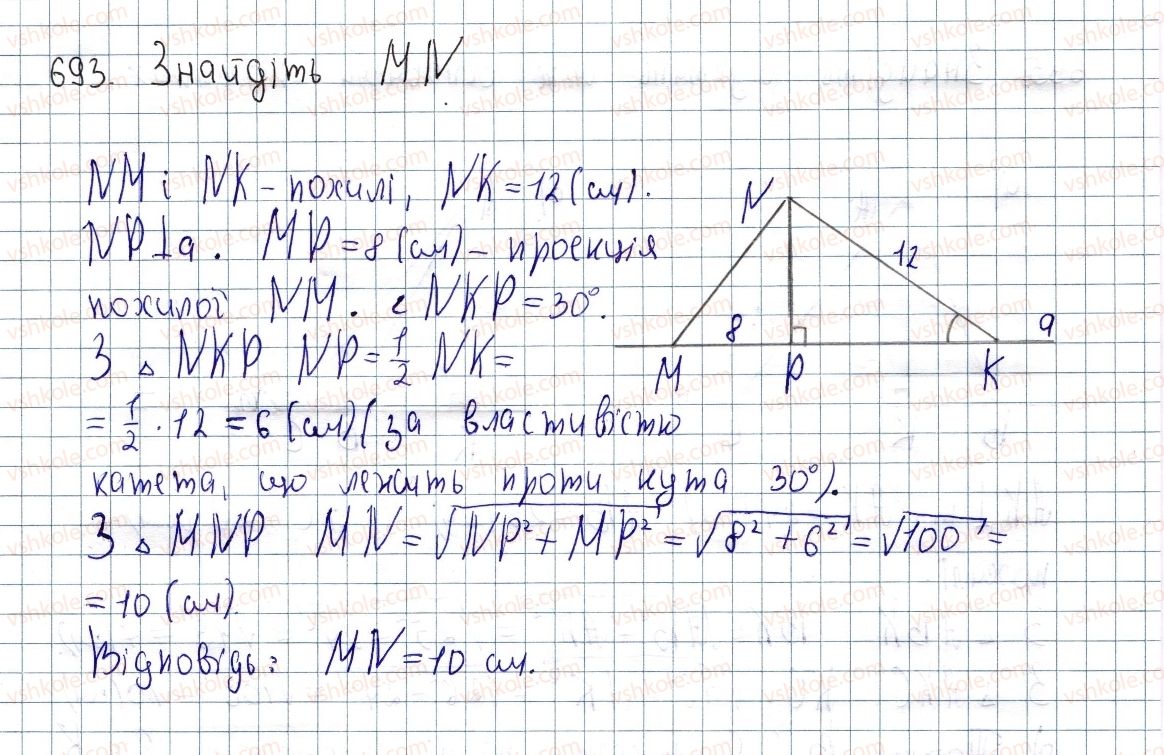 693. Знайдіть MN
NM і NK - похилі, NK = 12 (см).
NP⊥a. MP = 8 (см) - проекція
похилої NM. ∠NKP = 30°.
З △NKP NP = 1/2 NK =
= 1/2 · 12 = 6 (см) (за властивістю
катета, що лежить проти кута 30°).
З △MNP MN = √(NP² + MP²) = √(8² + 6²) = √100 =
= 10 (см).
Відповідь: MN = 10 см.
N
12
8
a
M P K